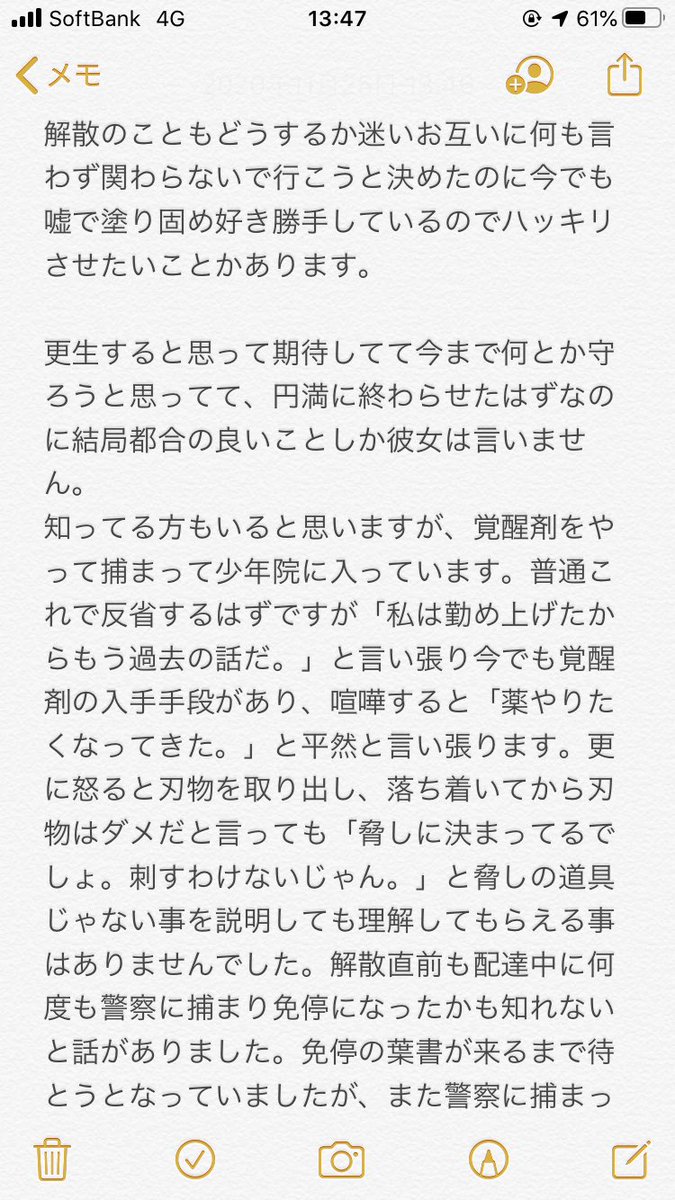 SoftBank 4G 13:47 61%
メモ
解散のこともどうするか迷いお互いに何も言
わず関わらないで行こうと決めたのに今でも
嘘で塗り固め好き勝手しているのでハッキリ
させたいことかあります。
更生すると思って期待してて今まで何とか守
ろうと思ってて、円満に終わらせたはずなの
に結局都合の良いことしか彼女は言いませ
ん。
知ってる方もいると思いますが、覚醒剤をや
って捕まって少年院に入っています。普通こ
れで反省するはずですが「私は勤め上げたか
らもう過去の話だ。」と言い張り今でも覚醒
剤の入手手段があり、喧嘩すると「薬やりた
くなってきた。」と平然と言い張ります。更
に怒ると刃物を取り出し、落ち着いてから刃
物はダメだと言っても「脅しに決まってるで
しょ。刺すわけないじゃん。」と脅しの道具
じゃない事を説明しても理解してもらえる事
はありませんでした。解散直前も配達中に何
度も警察に捕まり免停になったかも知れない
と話がありました。免停の葉書が来るまで待
とうとなっていましたが、また警察に捕まっ